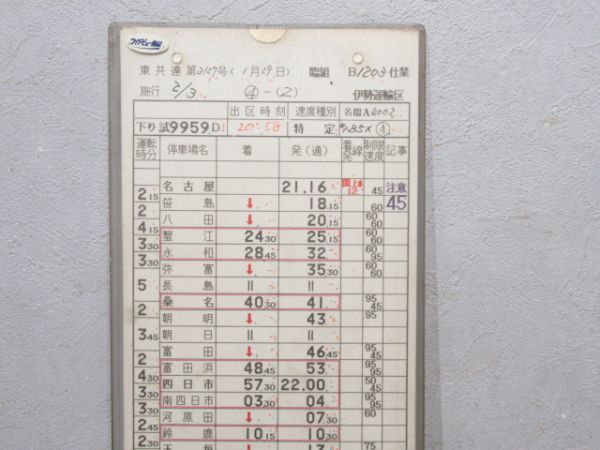 ワイドビュー南紀
東共達第3127号(1月29日) 臨組 B1203仕業
施行 2/3 ④-(2) 伊勢運輸区
出区時刻 速度種別 名臨A4002
下り 試9959D 20:58 特定 ④
運転時分 停車場名 着 発(通) 着発線 制限速度 記事
名古屋 21.16 45 注意
2 15 笹島 ↓ 18.15 60 45
2 八田 ↓ 20.15 60 60
4 15 蟹江 24 30 25.15 60 60
3 30 永和 28 45 32 60 95
3 30 弥富 ↓ 35 30 60 60
長島 || ||
5 桑名 40 30 41 95 45
2 朝明 ↓ 43 95
朝日 || ||
3 45 富田 ↓ 46.45 95 45
2 富田浜 48 45 53 95 95
4 30 四日市 57 30 22.00 50 45
3 30 南四日市 03 30 04 95 95
3 30 河原田 ↓ 07 30 60
2 45 鈴鹿 10 15 10 30
2 30 玉垣 ↓ 13 75